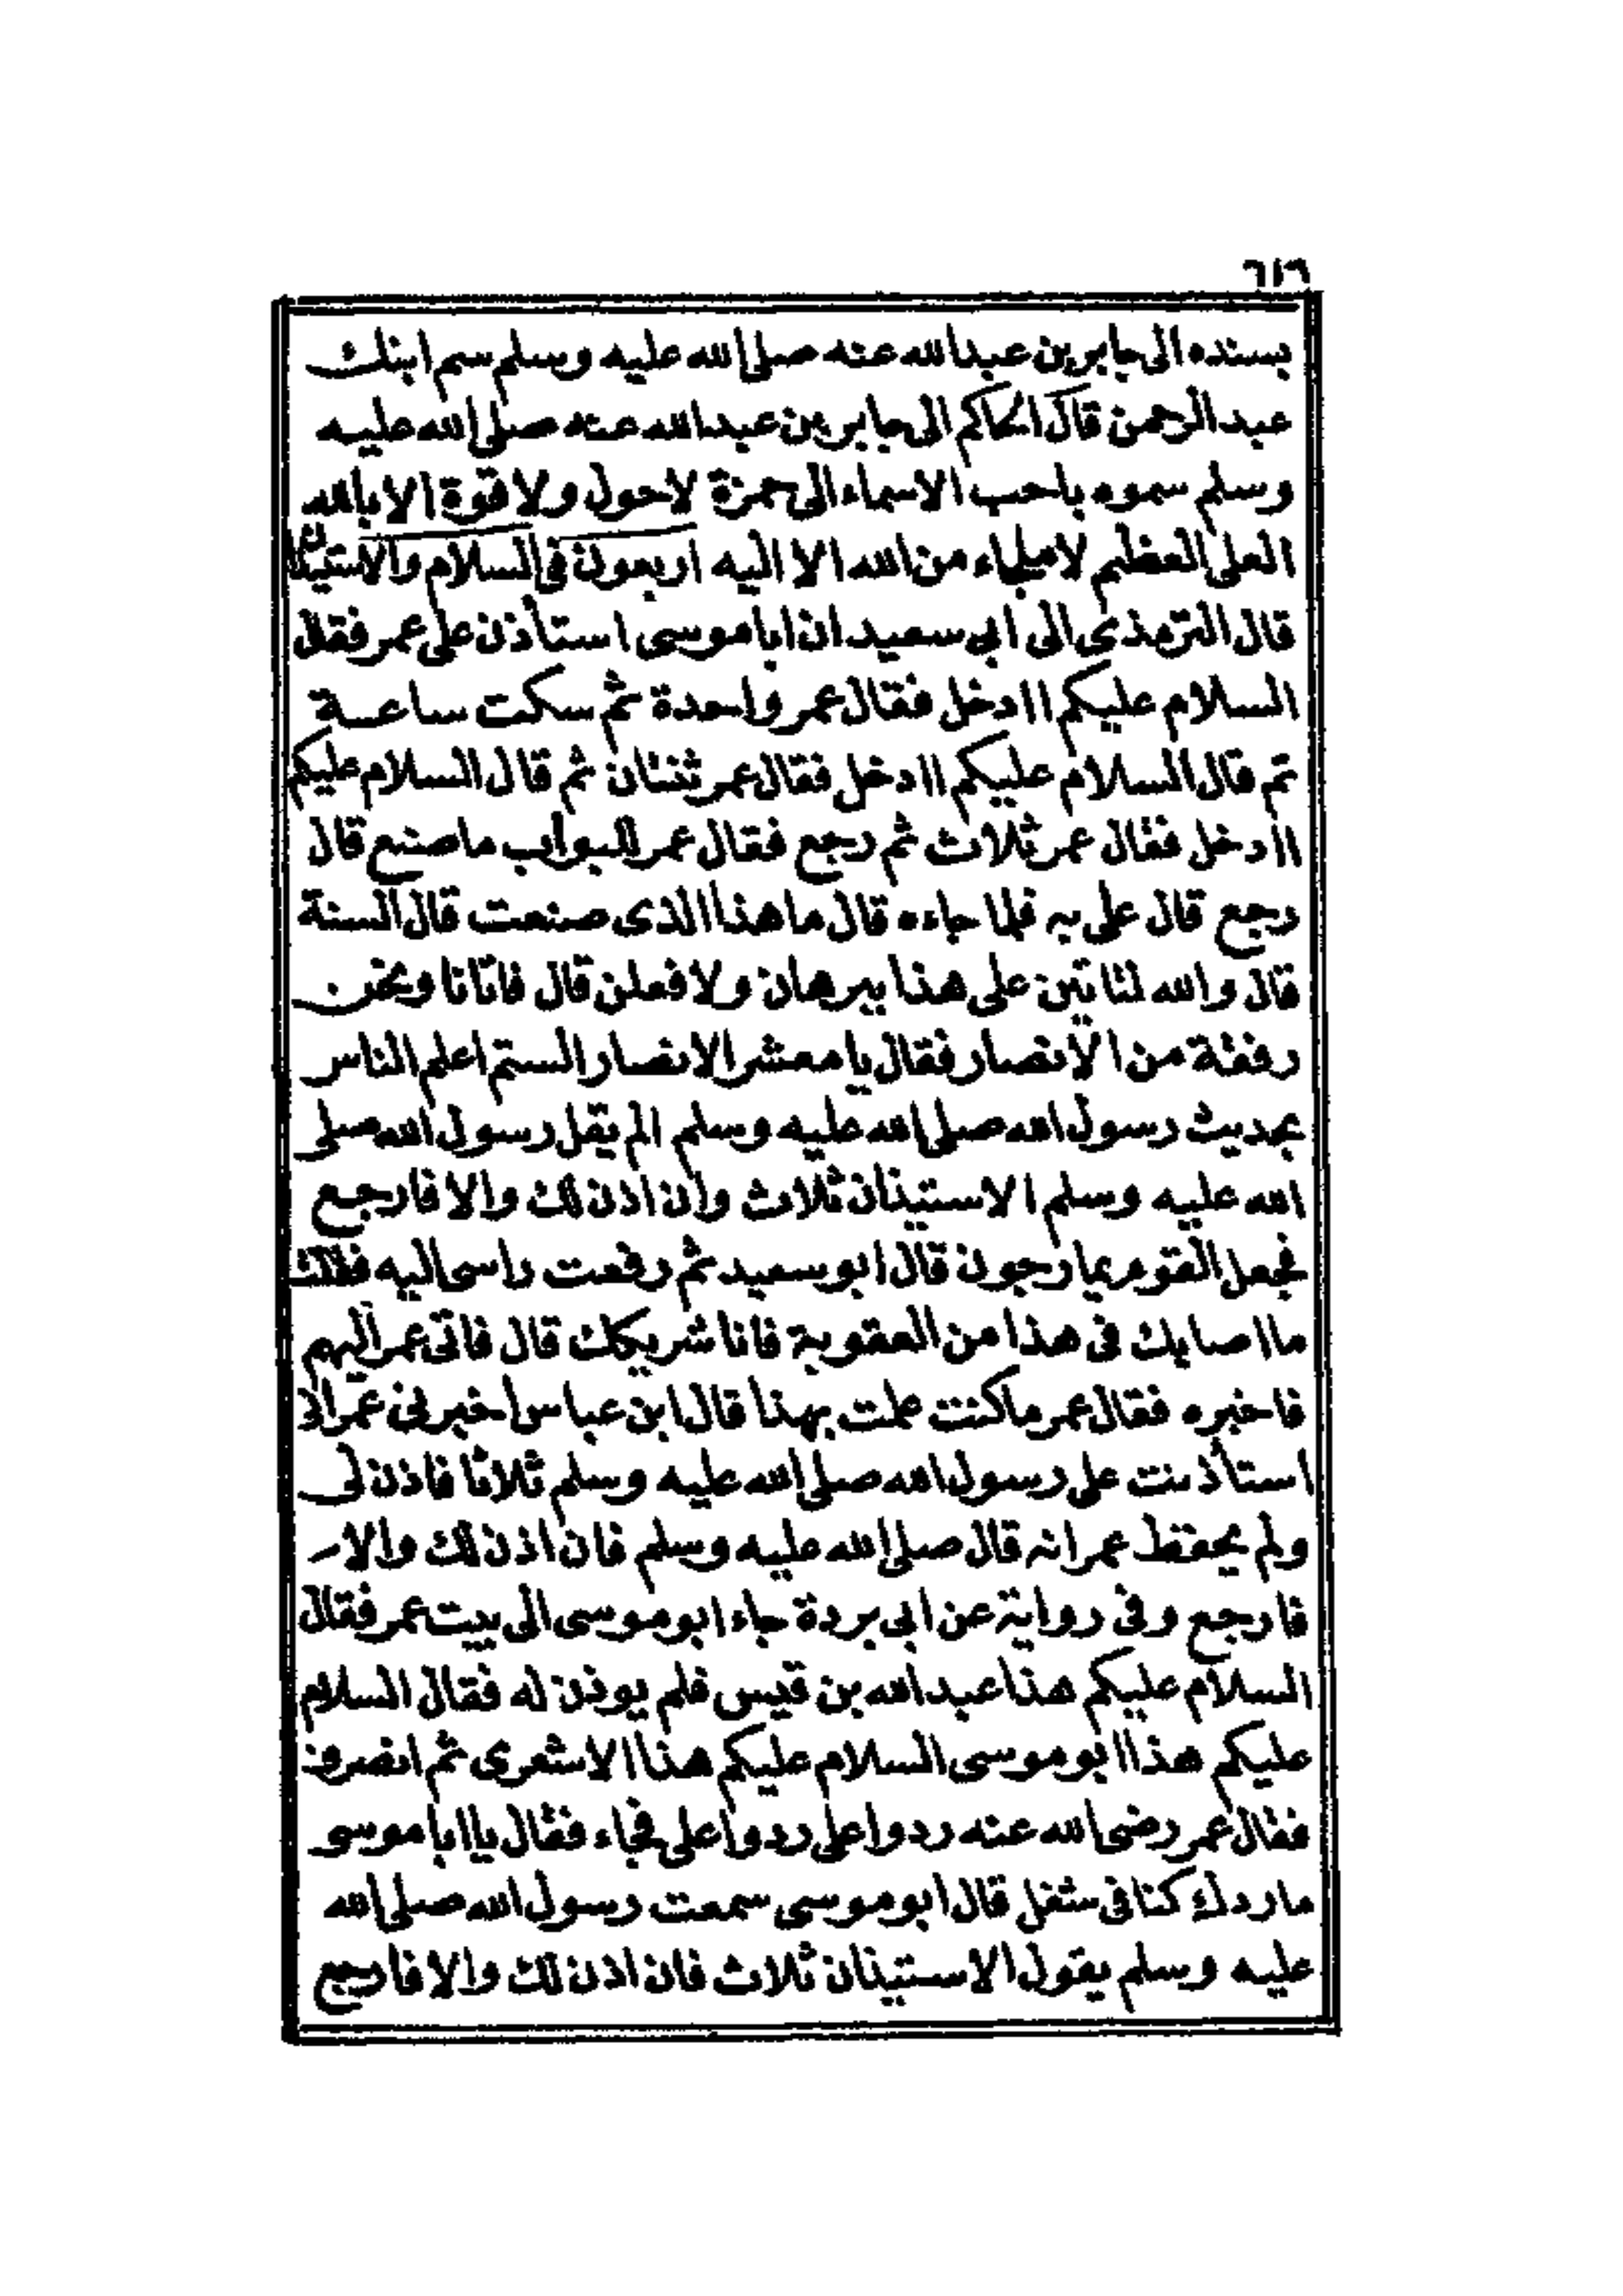 ٦١٦
بسنده الى جابر بن عبدالله عنه صلى الله عليه وسلم سم ابنك
عبد الرحمن قال الحاكم الى جابر بن عبدالله عنه صلى الله عليه
وسلم سموه باحب الاسماء الى حمزة لاحول ولا قوة الا بالله
العلى العظيم لا ملجاء من الله الا اليه اربعون فى السلام والاستيذان
قال الترمذى الى ابى سعيد ان ابا موسى استأذن على عمر فقال
السلام عليكم اادخل فقال عمر واحدة ثم سكت ساعة
ثم قال السلام عليكم اادخل فقال عمر ثنتان ثم قال السلام عليكم
اادخل فقال عمر ثلاث ثم رجع فقال عمر للبواب ما صنع قال
رجع قال على به فلما جاءه قال ما هذا الذى صنعت قال السنة
قال والله لتاتين على هذا ببرهان ولافعلن قال فاتانا ونحن
رفقة من الانصار فقال يا معشر الانصار الستم اعلم الناس
بحديث رسول الله صلى الله عليه وسلم الم يقل رسول الله صلى
الله عليه وسلم الاستيذان ثلاث وان اذن لك والا فارجع
فجعل القوم يمازحون قال ابو سعيد ثم رفعت راسى اليه فقلت
ما اصابك فى هذا من العقوبة فانا شريكك قال فاتى عمر اليهم
فاخبره فقال عمر ما كنت علمت بهذا قال ابن عباس اخبرنى عمر انى
استأذنت على رسول الله صلى الله عليه وسلم ثلاثا فاذن لى
ولم يحفظ عمر انه قال صلى الله عليه وسلم فان اذن لك والا
فارجع وفى رواية عن ابى بردة جاء ابو موسى الى بيت عمر فقال
السلام عليكم هذا عبد الله بن قيس فلم يوذن له فقال السلام
عليكم هذا ابو موسى السلام عليكم هذا الاشعرى ثم انصرف
فقال عمر رضى الله عنه ردوا على ردوا على فجاء فقال يا ابا موسى
ما ردك كنا فى شغل قال ابو موسى سمعت رسول الله صلى الله
عليه وسلم يقول الاستيذان ثلاث فان اذن لك والا فارجع